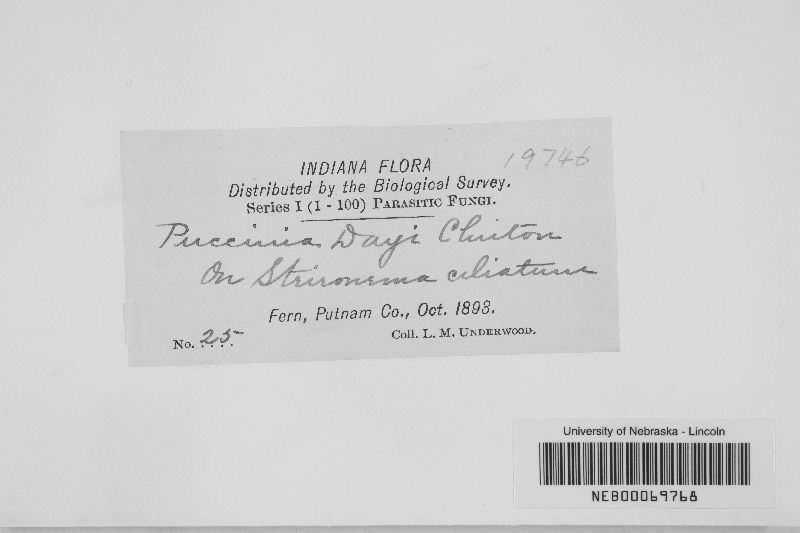 19746
INDIANA FLORA
Distributed by the Biological Survey.
Series I (1 - 100) PARASITIC FUNGI.
Puccinia Dayi Clinton
On Steironema ciliatum
Fern, Putnam Co., Oct. 1893.
No. 25
Coll. L. M. UNDERWOOD.
University of Nebraska - Lincoln
NEB00069768